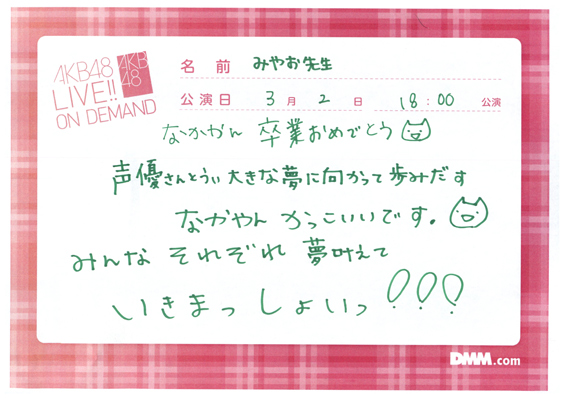 AKB48
LIVE!!
ON DEMAND
AKB
48
名 前 みやお先生
公演日 3月 2日 18:00 公演
なかかん 卒業おめでとう
声優さんとうい大きな夢に向かって歩みだす
なかやん かっこいいです。
みんな それぞれ 夢叶えて
いきまっしょいっ!!!
DMM.com